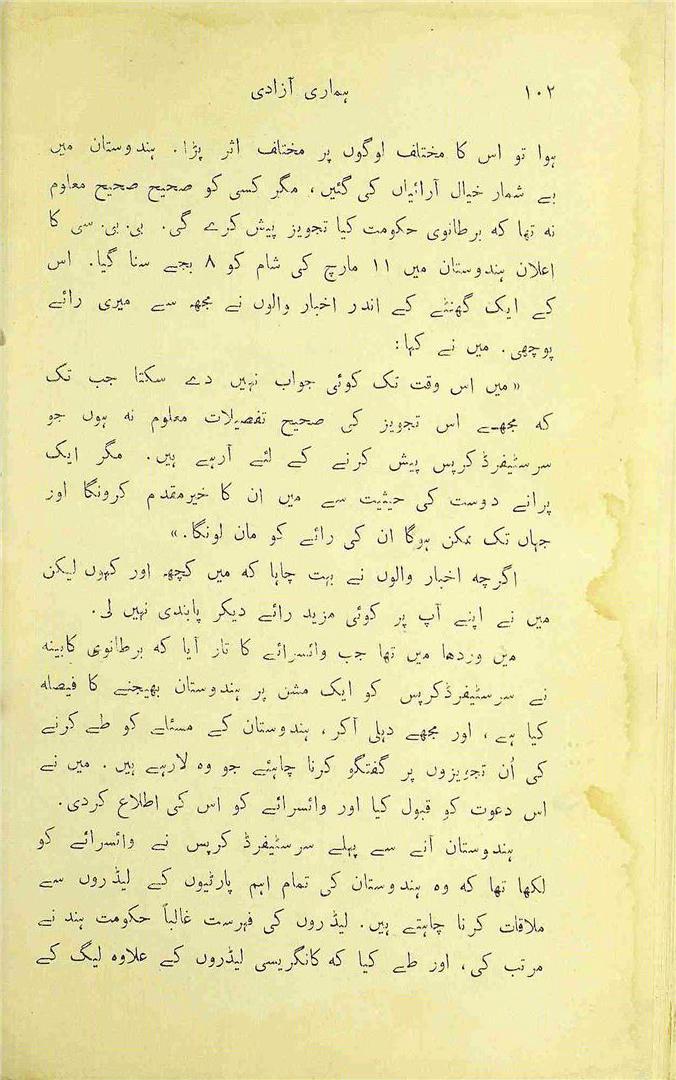 ۱۰۲ ہماری آزادی
ہوا تو اس کا مختلف لوگوں پر مختلف اثر پڑا۔ ہندوستان میں
بے شمار خیال آرائیاں کی گئیں، مگر کسی کو صحیح صحیح معلوم
نہ تھا کہ برطانوی حکومت کیا تجویز پیش کرے گی۔ بی۔بی۔سی کا
اعلان ہندوستان میں ۱۱ مارچ کی شام کو ۸ بجے سنا گیا۔ اس
کے ایک گھنٹے کے اندر اخبار والوں نے مجھ سے میری رائے
پوچھی۔ میں نے کہا:
«میں اس وقت تک کوئی جواب نہیں دے سکتا جب تک
کہ مجھے اس تجویز کی صحیح تفصیلات معلوم نہ ہوں جو
سرسٹیفرڈکرپس پیش کرنے کے لئے آرہے ہیں۔ مگر ایک
پرانے دوست کی حیثیت سے میں ان کا خیرمقدم کرونگا اور
جہاں تک ممکن ہوگا ان کی رائے کو مان لونگا۔»
اگرچہ اخبار والوں نے بہت چاہا کہ میں کچھ اور کہوں لیکن
میں نے اپنے آپ پر کوئی مزید رائے دیکر پابندی نہیں لی۔
میں وردھا میں تھا جب وائسرائے کا تار آیا کہ برطانوی کابینہ
نے سرسٹیفرڈکرپس کو ایک مشن پر ہندوستان بھیجنے کا فیصلہ
کیا ہے، اور مجھے دہلی آکر، ہندوستان کے مسئلے کو طے کرنے
کی اُن تجویزوں پر گفتگو کرنا چاہئیے جو وہ لارہے ہیں۔ میں نے
اس دعوت کو قبول کیا اور وائسرائے کو اس کی اطلاع کردی۔
ہندوستان آنے سے پہلے سرسٹیفرڈ کرپس نے وائسرائے کو
لکھا تھا کہ وہ ہندوستان کی تمام اہم پارٹیوں کے لیڈروں سے
ملاقات کرنا چاہتے ہیں۔ لیڈروں کی فہرست غالباً حکومت ہند نے
مرتب کی، اور طے کیا کہ کانگریسی لیڈروں کے علاوہ لیگ کے